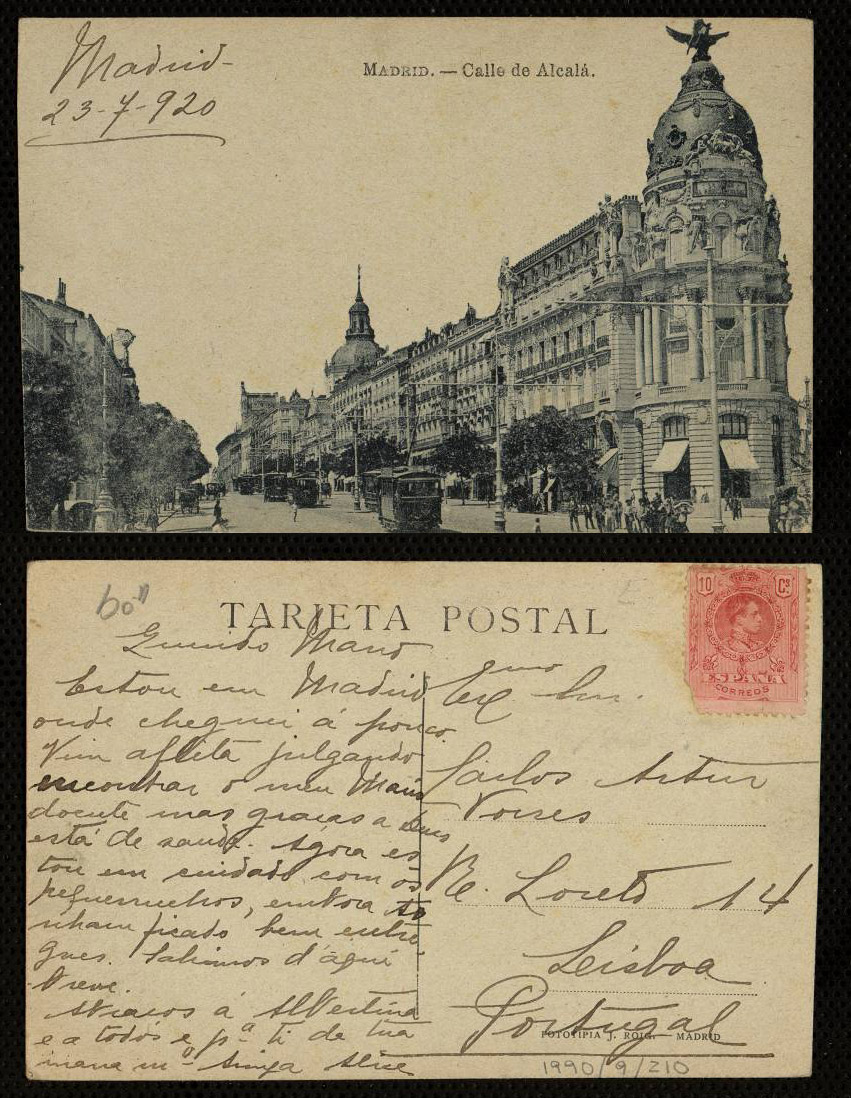 Madrid-
23-7-920
MADRID. — Calle de Alcalá.
60"
TARJETA POSTAL
10 Cs
ESPAÑA
CORREOS
Querido Mano
Estou em Madrid
onde cheguei á pouco.
Vim aflita julgando
encontrar o meu Mario
doente mas graças a Deus
está de saude. Agora es-
tou em cuidado com os
pequenuchos, embora te-
nham ficado bem entre-
gues. Sahimos d'aqui
breve.
Abraços á Albertina
e a todos e pª ti de tua
mana mº amiga Alice
Exmo Snr.
Carlos Artur
R. Loreto 14
Lisboa
Portugal
FOTOTIPIA J. ROIG. — MADRID
1990/9/210